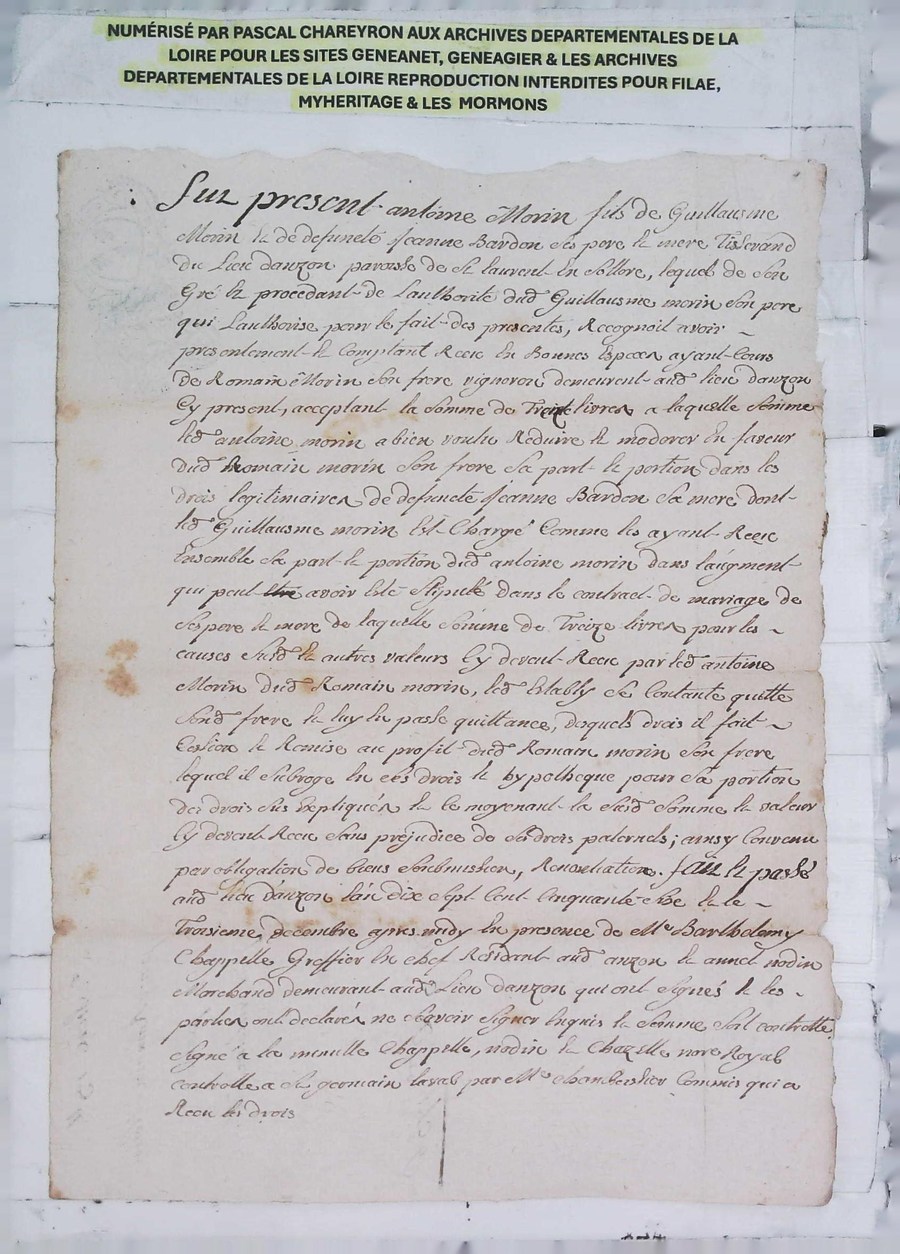 NUMÉRISÉ PAR PASCAL CHAREYRON AUX ARCHIVES DEPARTEMENTALES DE LA
LOIRE POUR LES SITES GENEANET, GENEAGIER & LES ARCHIVES
DEPARTEMENTALES DE LA LOIRE REPRODUCTION INTERDITES POUR FILAE,
MYHERITAGE & LES MORMONS
Fut present antoine Morin fils de Guillausme
Morin et de defuncte Jeanne Bardon ses pere et mere Tisserand
du Lieu danzon paroisse de st laurent En Sollore, lequel de Son
Gré et procedant de Lauthorité dud Guillausme morin Son pere
qui Lauthorise pour le fait des presentes, Recognoit avoir
presentement et Comptant Receu En Bonnes Especes ayant Cours
De Romain Morin Son frere vigneron demeurent aud lieu danzon
Cy present, acceptant la Somme de Treize livres a laquelle Somme
led antoine morin a bien voulu Reduire et moderer En faveur
dud Romain morin Son frere Sa part et portion dans les
drois legitimaires de defuncte Jeanne Bardon Sa mere dont
led Guillausme morin Est Chargé Comme les ayant Receu
Ensemble Sa part et portion dud antoine morin dans laugment
qui peut avoir Esté Stipulé dans le contract de mariage de
Ses pere et mere de laquelle Somme de Treize livres pour les
causes Susd et autres valeurs Cy devent Receu par led antoine
Morin dud Romain morin, led Estably Se Contante quitte
Sond frere et luy En passe quittance, desquels drois il fait
Cession et Remise au profit dud Romain morin Son frere
lequel il Subroge En ses drois et hypotheque pour Sa portion
des drois Sus Expliqués Et Ce moyenant la Susd Somme et valeur
Cy devent Receu Sans prejudice de Ses drois paternels; ainsy Convenu
par obligation de biens Soubmission, Renontiation. fait et passé
aud lieu danzon lan dix Sept Cent Cinquante Et le
Troisieme decembre apres midy En presence de Me Barthelemy
Chappelle Greffier En chef Residant aud anzon et annet nodin
Marchand demeurant aud Lieu danzon qui ont Signés et les
parties ont declarés ne Scavoir Signer Enquis et Somme Soit controllé
Signé a la minutte Chappelle, nodin et Chazelle nore Royal
Controllé a St germain laval par Me Commis qui a
Receu les drois